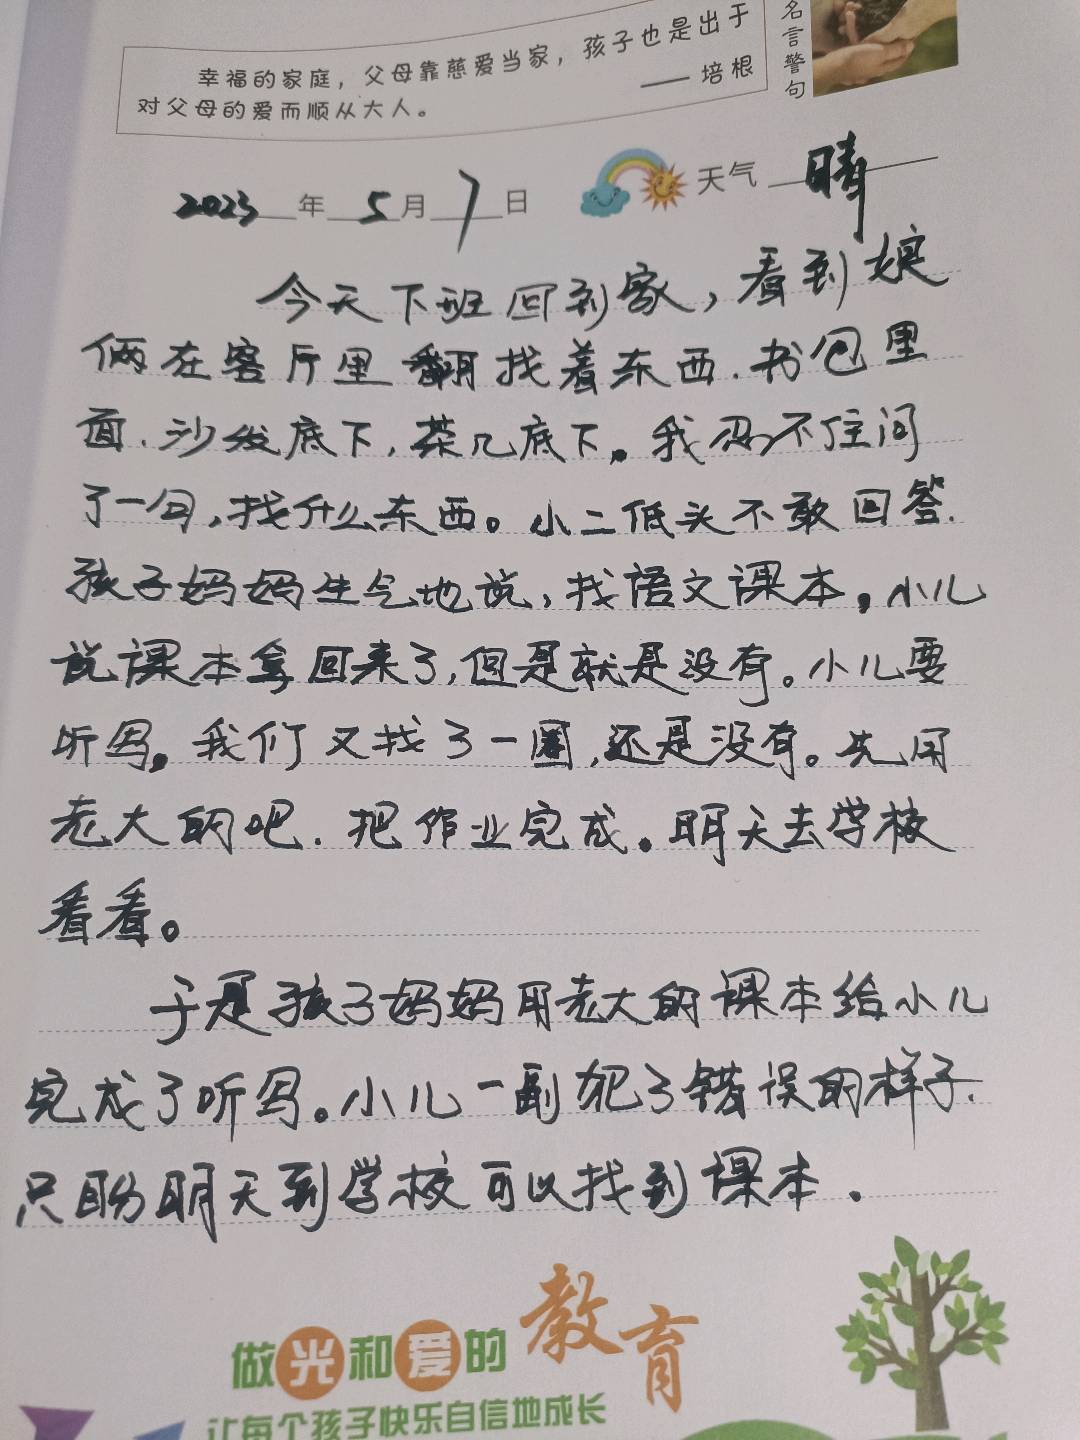 幸福的家庭，父母靠慈爱当家，孩子也是出于
对父母的爱而顺从大人。 ——培根
名言警句
2023年5月7日 天气 晴
今天下班回到家，看到娘
俩在客厅里翻找着东西.书包里
面.沙发底下,茶几底下。我忍不住问
了一句,找什么东西。小二低头不敢回答.
孩子妈妈生气地说,找语文课本,小儿
说课本拿回来了,但是就是没有。小儿要
听写。我们又找了一圈,还是没有。先用
老大的吧.把作业完成。明天去学校
看看。
于是孩子妈妈用老大的课本给小儿
完成了听写。小儿一副犯了错误的样子.
只盼明天到学校可以找到课本.
做光和爱的教育
让每个孩子快乐自信地成长